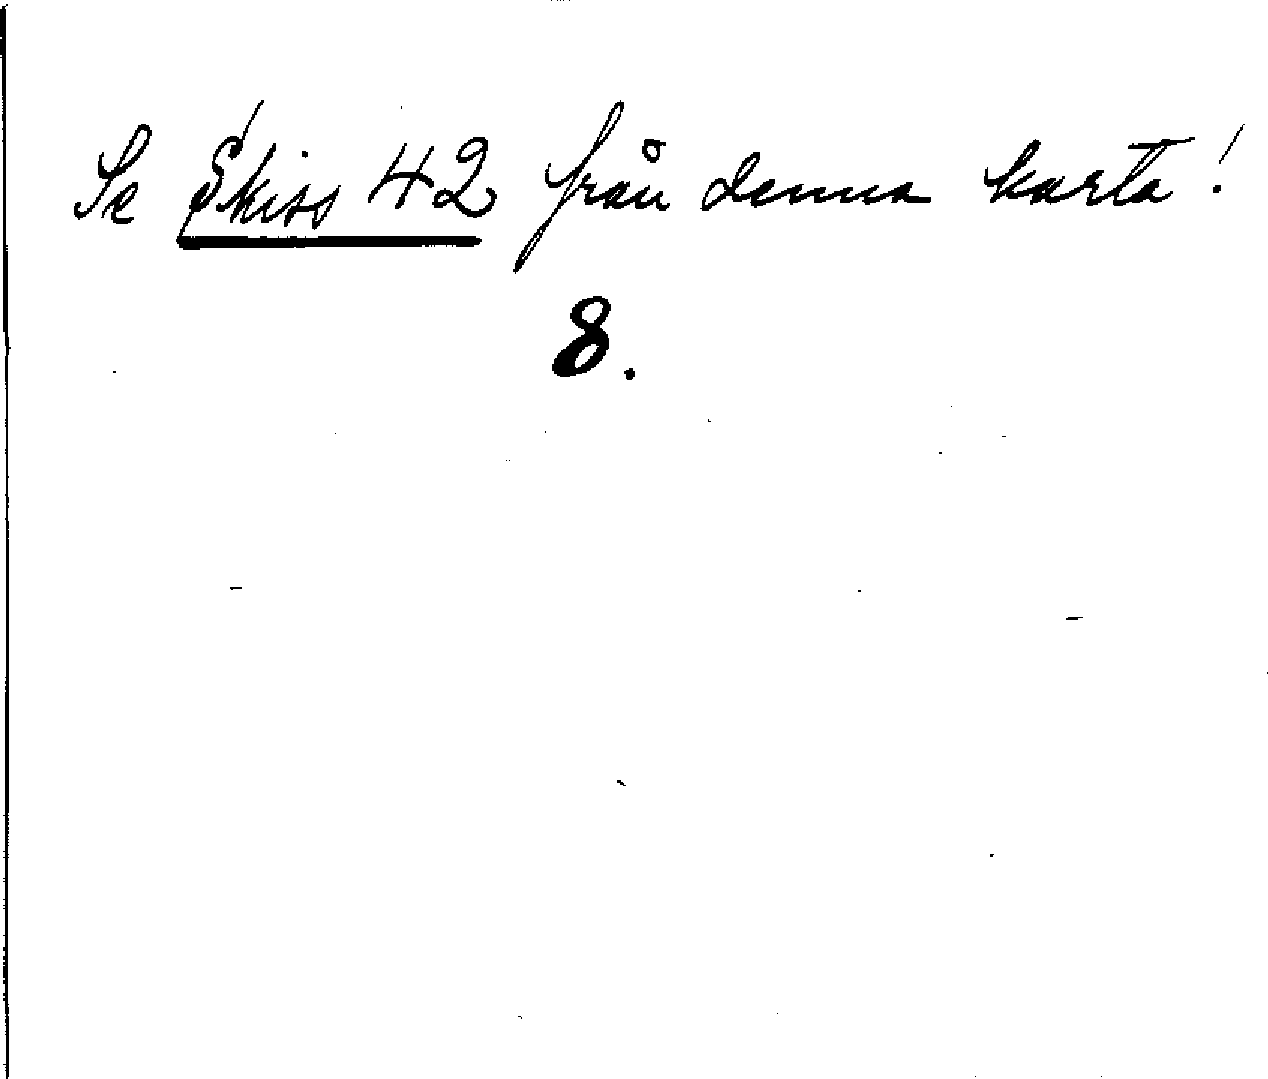 Se Skiss 42 från denna karta!
8.